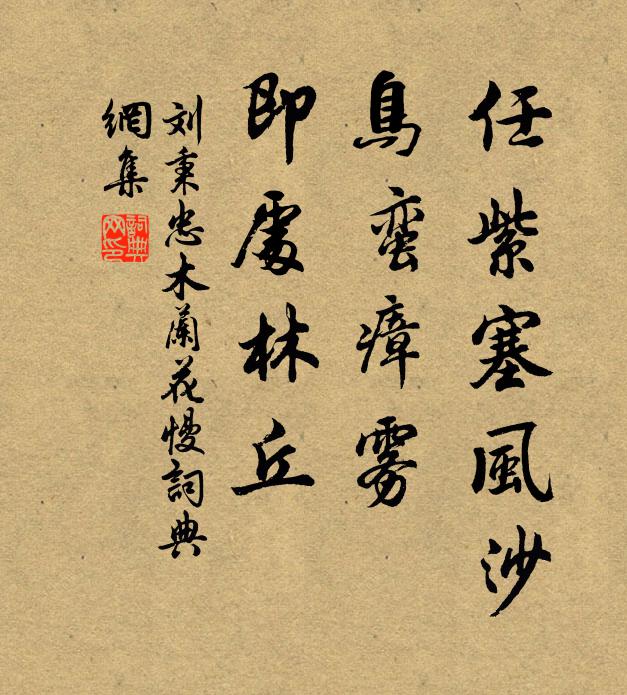 任紫塞風沙
鳥蛮瘴雾
即處林丘
刘秉忠木蘭花慢詞典
網集
詞典
网印